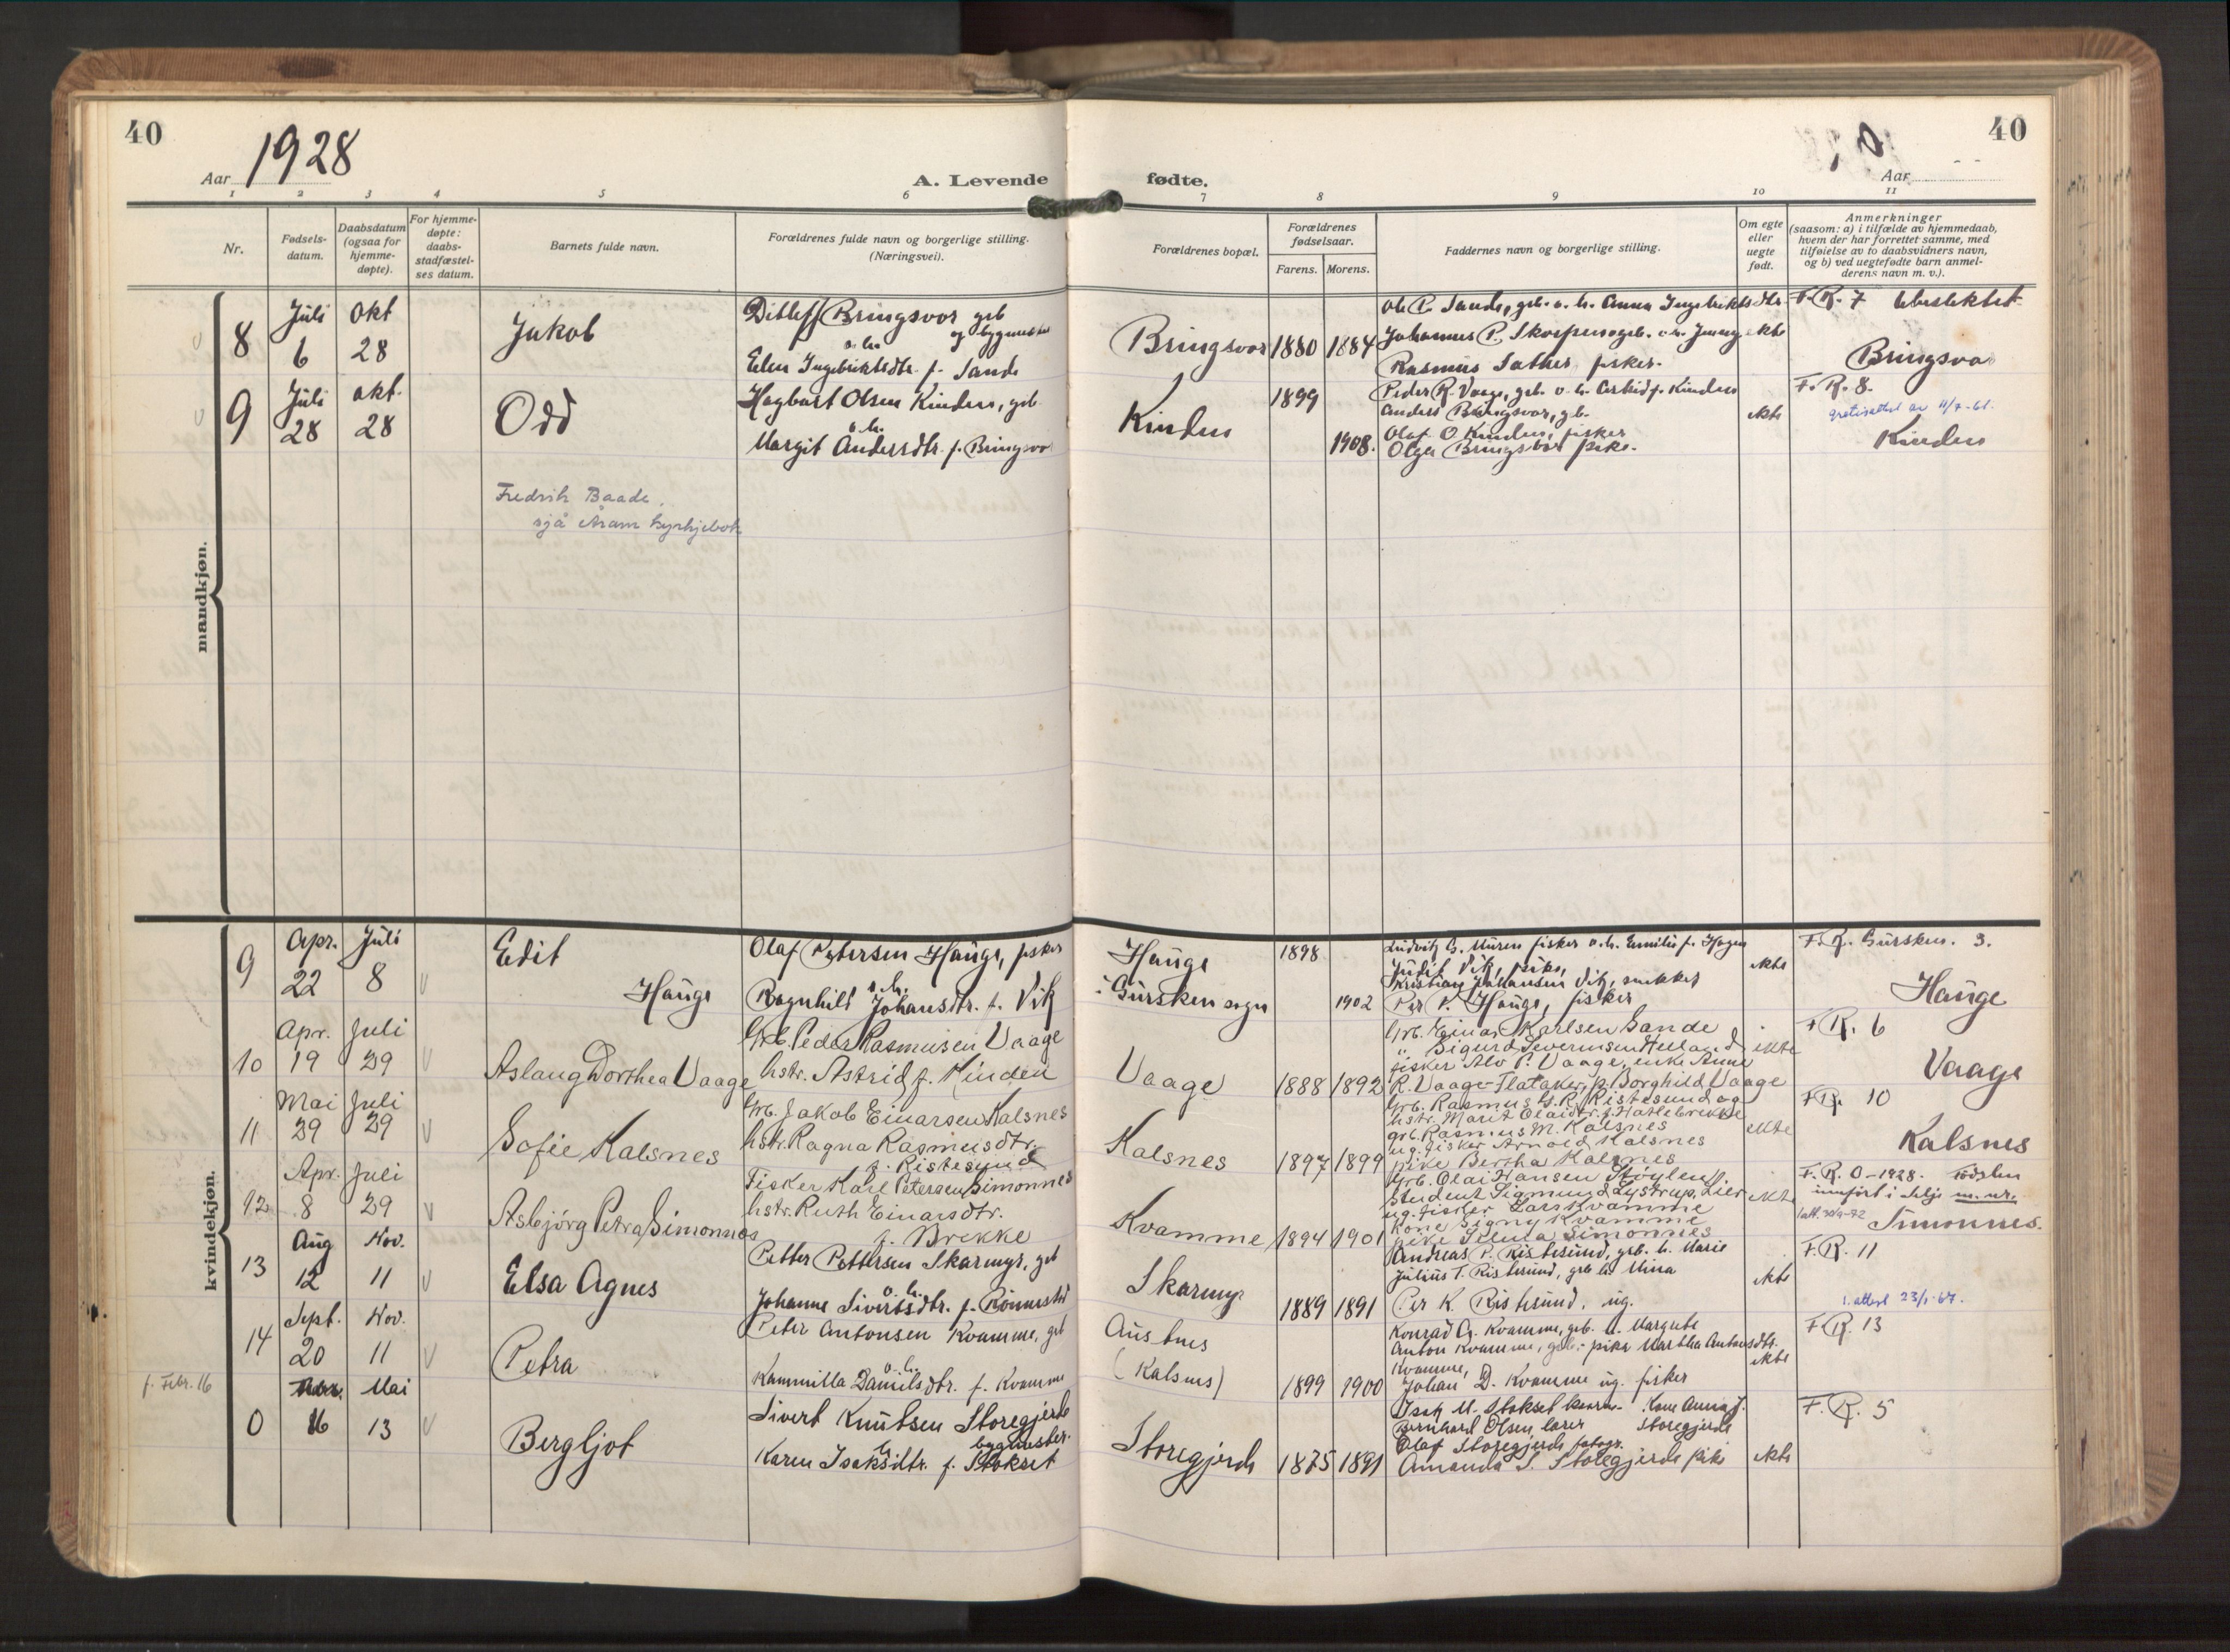 40
1928
Aar
A. Levende
fødte.
Aar
40
1 2 3 4 5 6 7 8 9 10 11
Nr.
Fødsels-
datum.
Daabsdatum
(ogsaa for
hjemme-
døpte).
For hjemme-
døpte:
daabs-
stadfæstel-
ses datum.
Barnets fulde navn.
Forældrenes fulde navn og borgerlige stilling.
(Næringsvei).
Forældrenes bopæl.
Forældrenes
fødselsaar.
Farens. Morens.
Faddernes navn og borgerlige stilling.
Om egte
eller
uegte
født.
Anmerkninger
(saasom: a) i tilfælde av hjemmedaab,
hvem der har forrettet samme, med
tilføielse av to daabsvidners navn,
og b) ved uegtefødte barn anmel-
derens navn m. v.).
mandkjøn.
8
Juli
6
Okt
28
Jakob
Ditleff Bringsvor grb
og bygmester
o. h.
Elen Ingebriktsdtr. f. Sande
Bringsvor
1880 1884
Ole P. Sande, grb. o. h. Anna Ingebriktsdtr.
Johannes P. Skorpen grb. o. h. Jenny
Rasmus Sather fisker.
ekte
F. R. 7
Bringsvor
9
Juli
28
okt.
28
Odd
Hagbart Olsen Kinden, grb.
o. h.
Margit Andersdtr. f. Bringsvor
Kinden
1899
1908.
Peder R. Vaage, grb. o. h. Astrid f. Kinden
Anders Bringsvor, gb.
Olaf O Kinden, fisker
Olga Bringsvor pike.
ekte
F. R. 8.
gratisattest av 11/7-61.
Kinden
Fredrik Baade,
sjå Åram kyrkjebok
kvindekjøn.
9
Apr.
22
Juli
8
Edit
Hauge
Olaf Petersen Hauge, fisker
o. h.
Ragnhild Johansdtr. f. Vik
Hauge
i Gursken sogn
1898
1902
Ludvik G. Muren fisker o. h. Emilie f. Hagen
Judit Vik, pike,
Kristian Johansen Vik, snekker
Per P. Hauge, fisker
ekte
F. R. Gursken. 3.
Hauge
10
Apr.
19
Juli
29
Aslaug Dorthea Vaage
Grb. Peder Rasmusen Vaage
hstr. Astrid f. Kinden
Vaage
1888 1892
Grb. Einar Karlsen Sande
" Sigurd Severinsen Helland
fisker Alv P. Vaage, enke Anne
R. Vaage-Flataker, p. Borghild Vaage
ekte
F R. 6
Vaage
11
Mai
29
Juli
29
Sofie Kalsnes
Grb. Jakob Einarsen Kalsnes
hstr. Ragna Rasmusdtr.
f. Ristesund
Kalsnes
1897 1899
Grb. Rasmus G. R. Ristesund og
hstr. Marit Olaidtr. f. Hatlebrekke
grb. Rasmus M. Kalsnes
ug. fisker Arnold Kalsnes
pike Bertha Kalsnes
ekte
F R. 10
Kalsnes
12
Apr.
8
Juli
29
Asbjörg Petra Simonnes
Fisker Karl Petersen Simonnes
hstr. Ruth Einarsdtr.
f. Brekke
Kvamme
1894 1901
Grb. Olai Hansen Støylen
Student Sigmund Lystrup, Lier
ug. fisker Lars Kvamme
Kone Signy Kvamme
pike Simonnes
ekte
F. R. 0-1928. Fødslen
innført i Selje m. nr.
Simonnes.
13
Aug
12
Nov.
11
Elsa Agnes
Petter Pettersen Skarmyr, grb
o. h.
Johanne Sivertsdtr. f. Rönnestad
Skarmyr
1889 1891
Andreas P. Ristesund, grb. h. Marie
Julius T. Ristesund, grb h. Mina
Per K. Ristesund, ug.
ekte
F. R. 11
1. attest 23/1-67.
14
Sept.
20
Nov.
11
Petra
Peter Antonsen Kvamme, grb
o. h.
Kammilla Danielsdtr. f. Kvamme
Austnes
(Kalsnes)
1899 1900
Konrad A. Kvamme, grb. h. Margrete
Anton Kvamme, grb.; pike Martha Antonsdtr.
Kvamme,
Johan D. Kvamme ug. fisker
ekte
F R. 13
f. Febr. 16
0
16
Mai
13
Bergljot
Sivert Knutsen Storegjerde
bygmester.
h.
Karen Isaksdtr. f. Stokset
Storegjerde
1875 1891
Isak M. Stokset Kone Anna J.
Bernhard Olsen, lærer Storegjerde
Olaf Storegjerde fotogr.
Amanda S. Storegjerde pike
ekte
F. R. 5